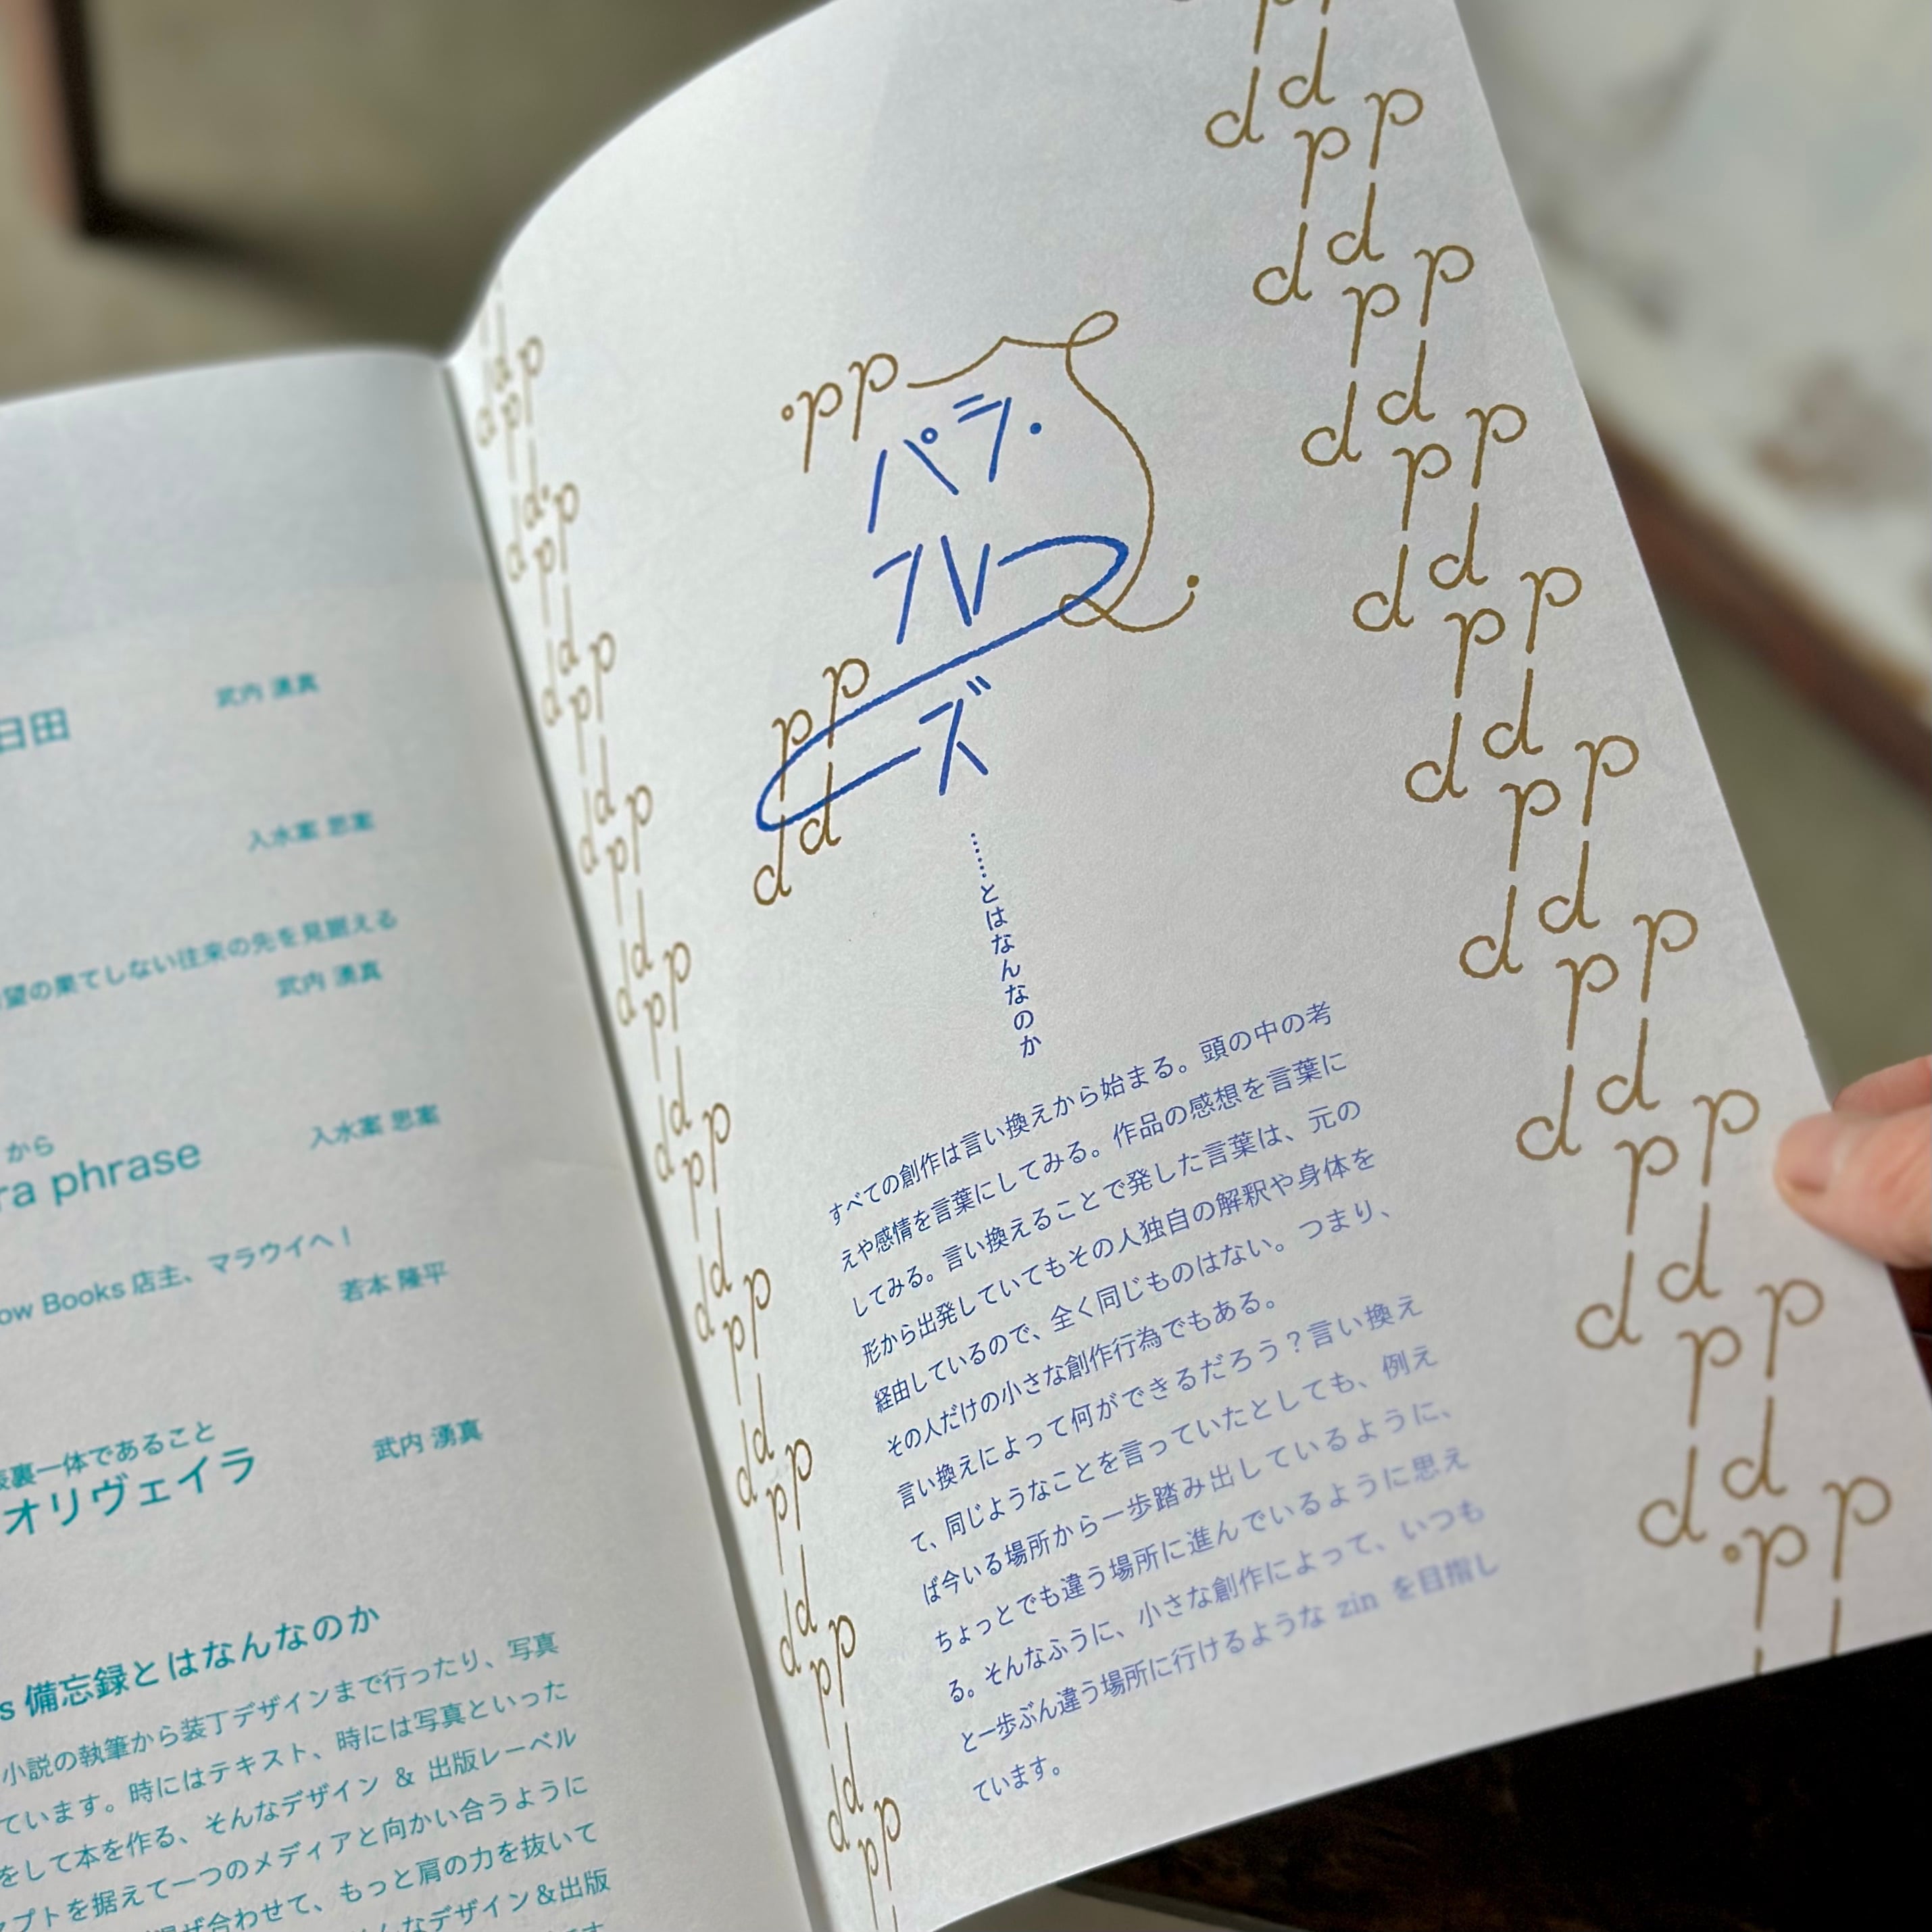 日田
武内 湧真
入水案 思案
望の果てしない往来の先を見据える
武内 湧真
から
ra phrase
入水案 思案
ow Books 店主、マラウイへ！
若本 隆平
表裏一体であること
オリヴェイラ
武内 湧真
s 備忘録とはなんなのか
小説の執筆から装丁デザインまで行ったり、写真
ています。時にはテキスト、時には写真といった
をして本を作る、そんなデザイン & 出版レーベル
プトを据えて一つのメディアと向かい合うように
混ぜ合わせて、もっと肩の力を抜いて
なデザイン&出版
pp
パラ・
フレー
ズ
pp
dd
……とはなんなのか
すべての創作は言い換えから始まる。頭の中の考
えや感情を言葉にしてみる。作品の感想を言葉に
してみる。言い換えることで発した言葉は、元の
形から出発していてもその人独自の解釈や身体を
経由しているので、全く同じものはない。つまり、
その人だけの小さな創作行為でもある。
言い換えによって何ができるだろう？言い換え
て、同じようなことを言っていたとしても、例え
ば今いる場所から一歩踏み出しているように、
ちょっとでも違う場所に進んでいるように思え
る。そんなふうに、小さな創作によって、いつも
と一歩ぶん違う場所に行けるような zin を目指し
ています。